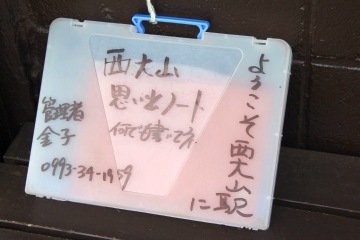 ようこそ西大山駅に
西大山
思い出ノート
何でも書いて下さい
管理者
金子
0993-34-1959